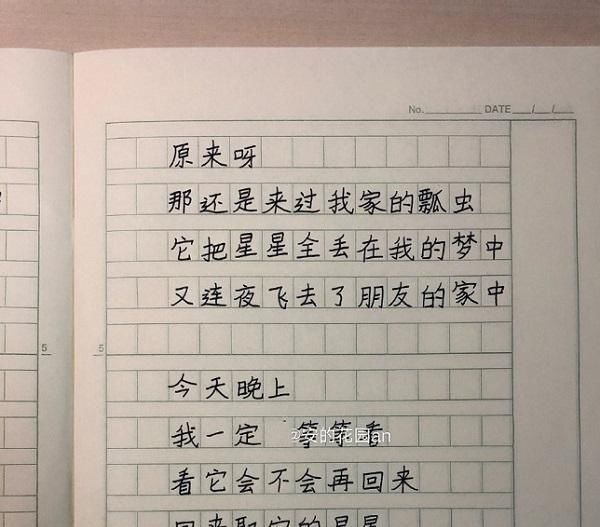 No. DATE / /
原来呀
那还是来过我家的瓢虫
它把星星全丢在我的梦中
又连夜飞去了朋友的家中
5 5
今天晚上
我一定 等等看
@安的花园an
看它会不会再回来
回来取它的星星